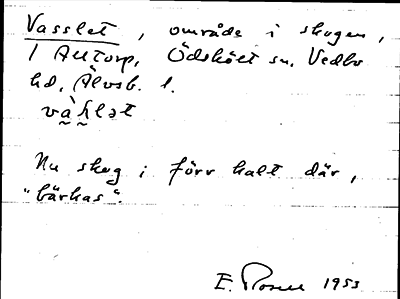 Vasslet, område i skogen,
1 Alltorp, Ödskölt sn, Vedbo
hd, Älvsb. l.
Nu skog i förr kalt där,
"bärkas".
E. Rosell 1953